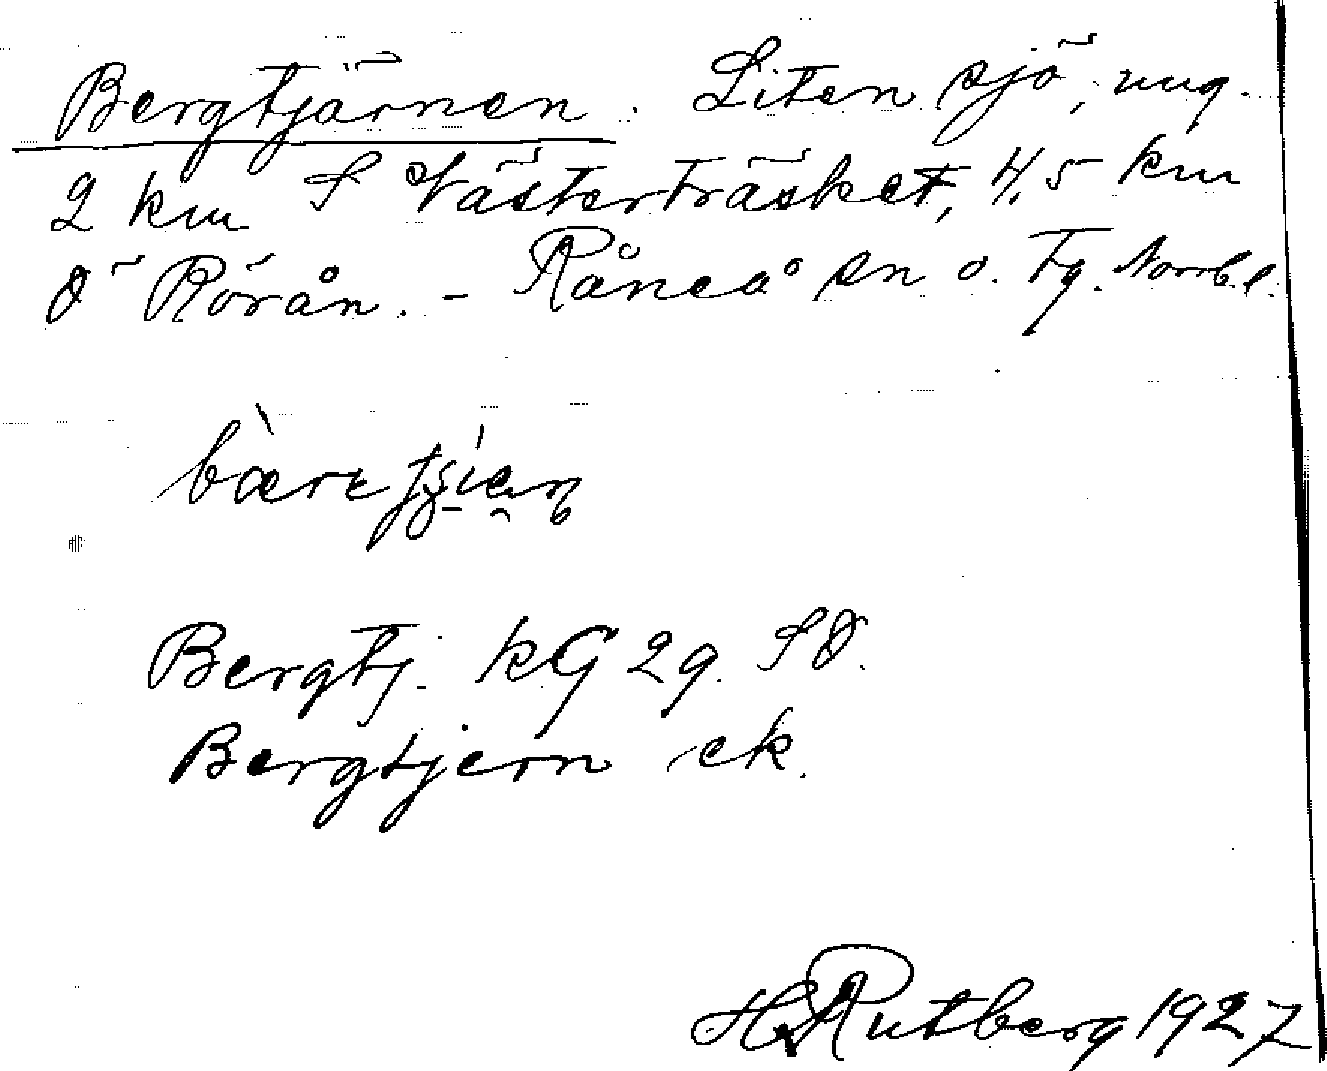 Bergtjärnen. Liten sjö, ung.
2 km S Västerträsket, 4,5 km
Ö Rörån. - Råneå sn o. tg. Norrb. l.
Bergtj. kG 29. SO.
Bergtjern ek.
H Rutberg 1927